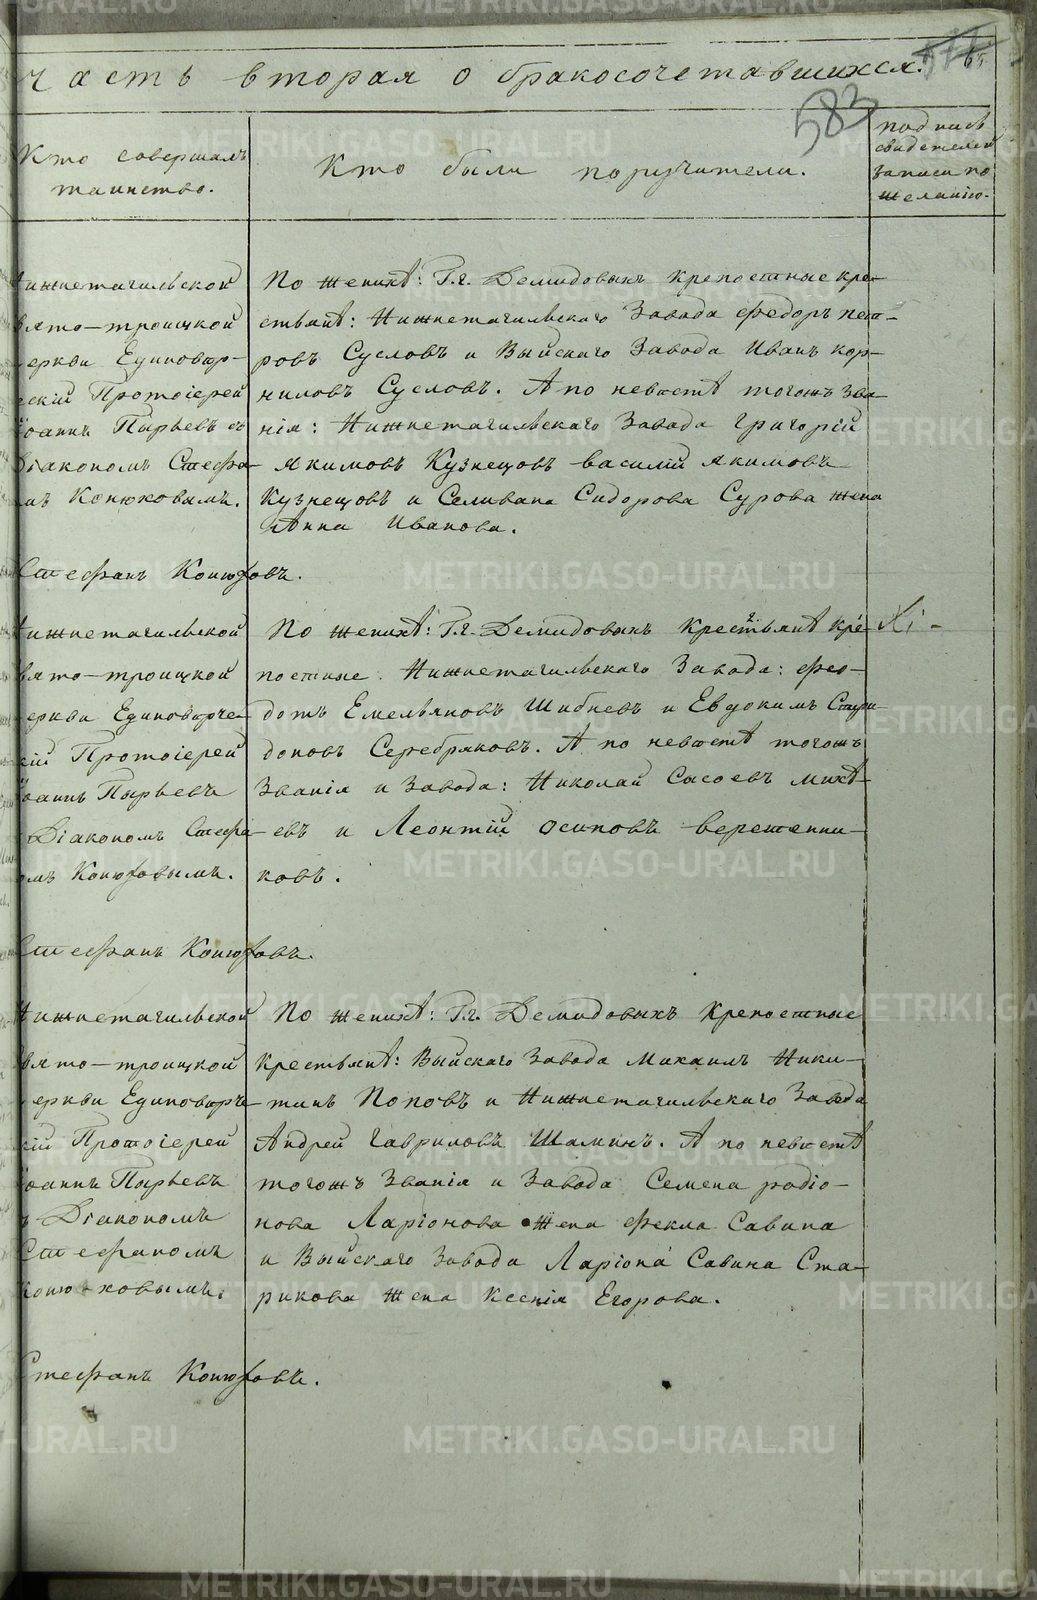 часть вторая о бракосочетавшихся.
583
65
Кто совершалъ
таинство.
Кто были поручители.
подпись
свидетелей
записи по
желанію.
нижнетагильской
вято-троицкой
еркви Единовер-
еский Протоіерей
оаннъ Пырьевъ съ
Діакономъ Стефа-
мъ Конюховымъ.
По женихѣ: Г.г. Демидовыхъ крепостные кре-
стьянѣ: Нижнетагильскаго Завода Федоръ пет-
ровъ Сусловъ и Выйскаго Завода Иванъ кор-
ниловъ Сусловъ. А по невѣстѣ тогожъ зва-
нія: Нижнетагильскаго Завода Григорій
якимовъ Кузнецовъ василій якимовъ
Кузнецовъ и Селивана Сидорова Сурова жена
Анна Иванова.
Стефанъ Конюховъ.
нижнетагильской
вято-троицкой
еркви Единоверче-
кій Протоіерей
оаннъ Пырьевъ
Діакономъ Стефа-
омъ Конюховымъ.
По женихѣ: Г.г. Демидовыхъ крестьянѣ кре-
постные Нижнетагильскаго Завода: фео-
дотъ Емельяновъ Шибневъ и Евдокимъ Спири-
доновъ Серебряковъ. А по невѣстѣ тогожъ
Званія и Завода: Николай Сасоевъ михѣ-
евъ и Леонтій осиповъ веретенни-
ковъ.
Стефанъ Конюховъ.
Нижнетагильской
вято-троицкой
еркви Единоверче-
кій Протоіерей
оаннъ Пырьевъ
ъ Діакономъ
Стефаномъ
коню-ховымъ.
По женихѣ: Г.г. Демидовыхъ Крепостные
крестьянѣ: Выйскаго Завода Михаилъ Ники-
тинъ Поповъ и Нижнетагильскаго Завода
Андрей Гавриловъ Шаминъ. А по невѣстѣ
тогожъ Званія и Завода Семена родіо-
нова Ларіонова жена фекла Савина
и Выйскаго Завода Ларіона Савина Ста-
рикова жена Ксенія Егорова.
Стефанъ Конюховъ.
METRIKI.GASO-URAL.RU